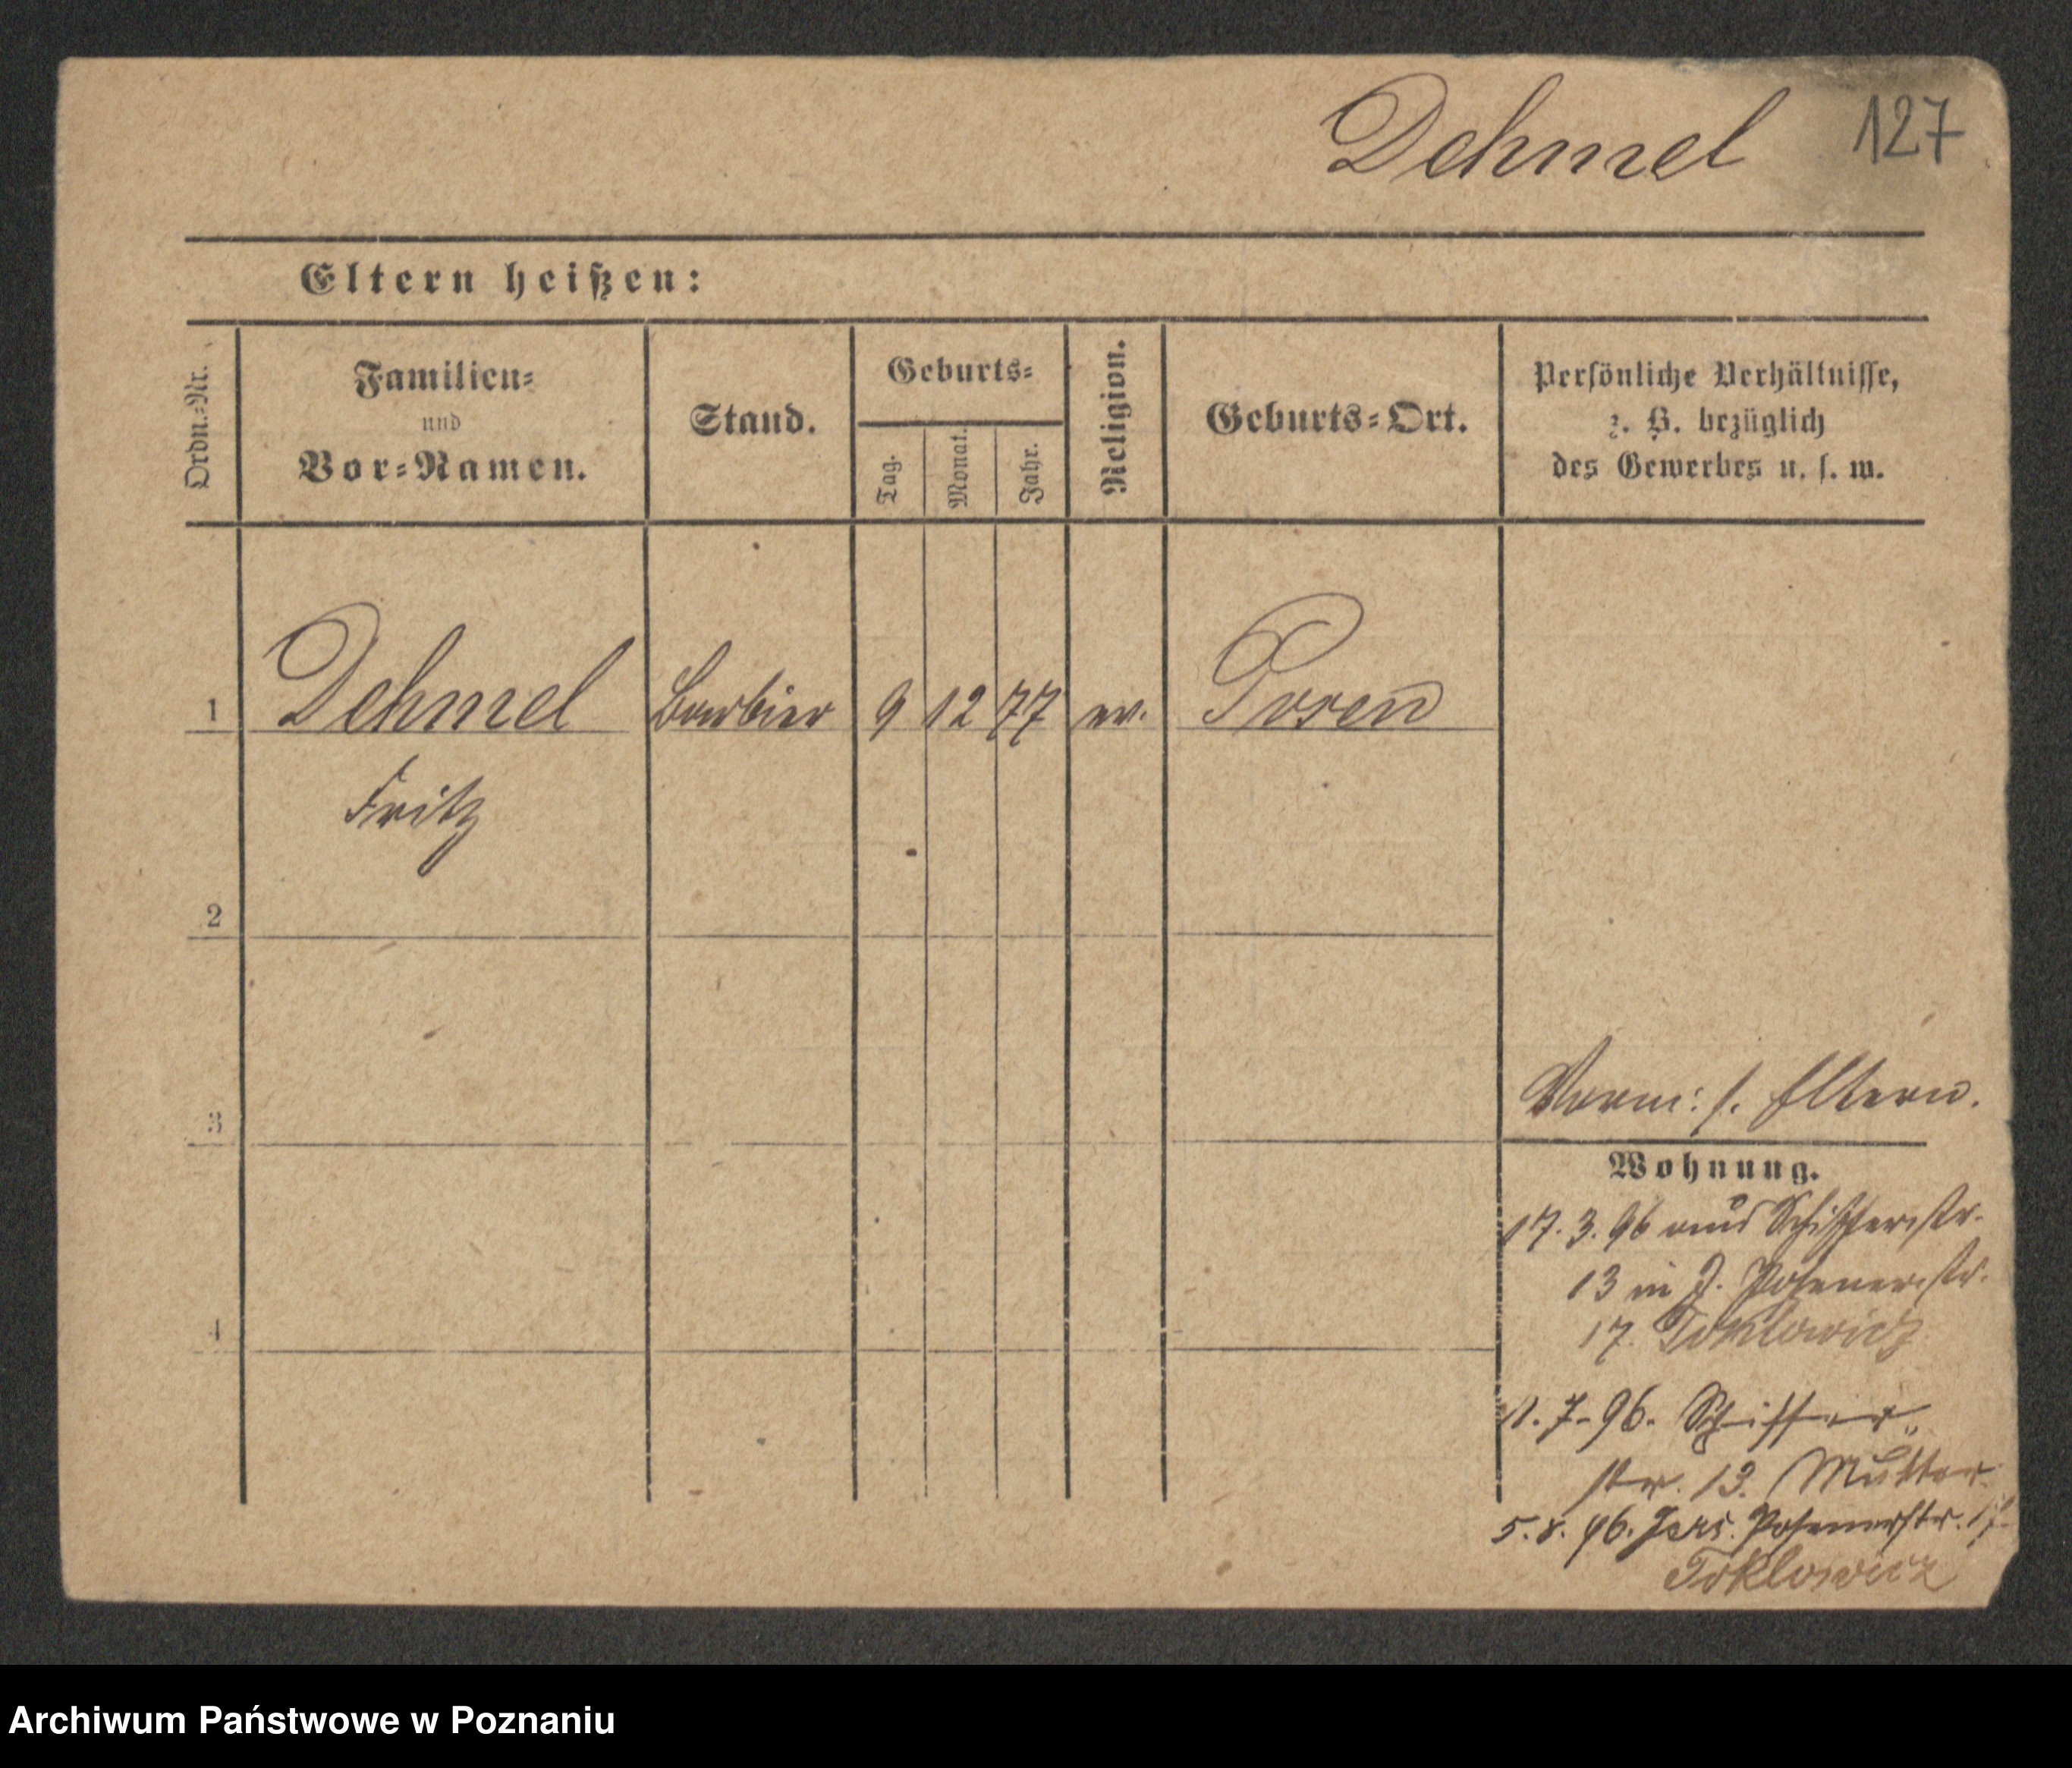 Dehmel 127
Eltern heißen:
Ordn.=Nr.
Familien=
und
Vor=Namen.
Stand.
Geburts=
Tag.
Monat.
Jahr.
Religion.
Geburts=Ort.
Persönliche Verhältnisse,
z. B. bezüglich
des Gewerbes u. s. w.
1 Dehmel Barbier 9 12 77 ev. Posen
Fritz
2
3
4
Vorm: s. Eltern.
Wohnung.
17. 3. 96 Schifferstr.
13 in J. Posenerstr.
17. Toklowicz
1. 7. 96. Schiffer
str. 13. Mutter
5. 8. 96. Jers. Posenerstr. 17
Toklowicz
Archiwum Państwowe w Poznaniu